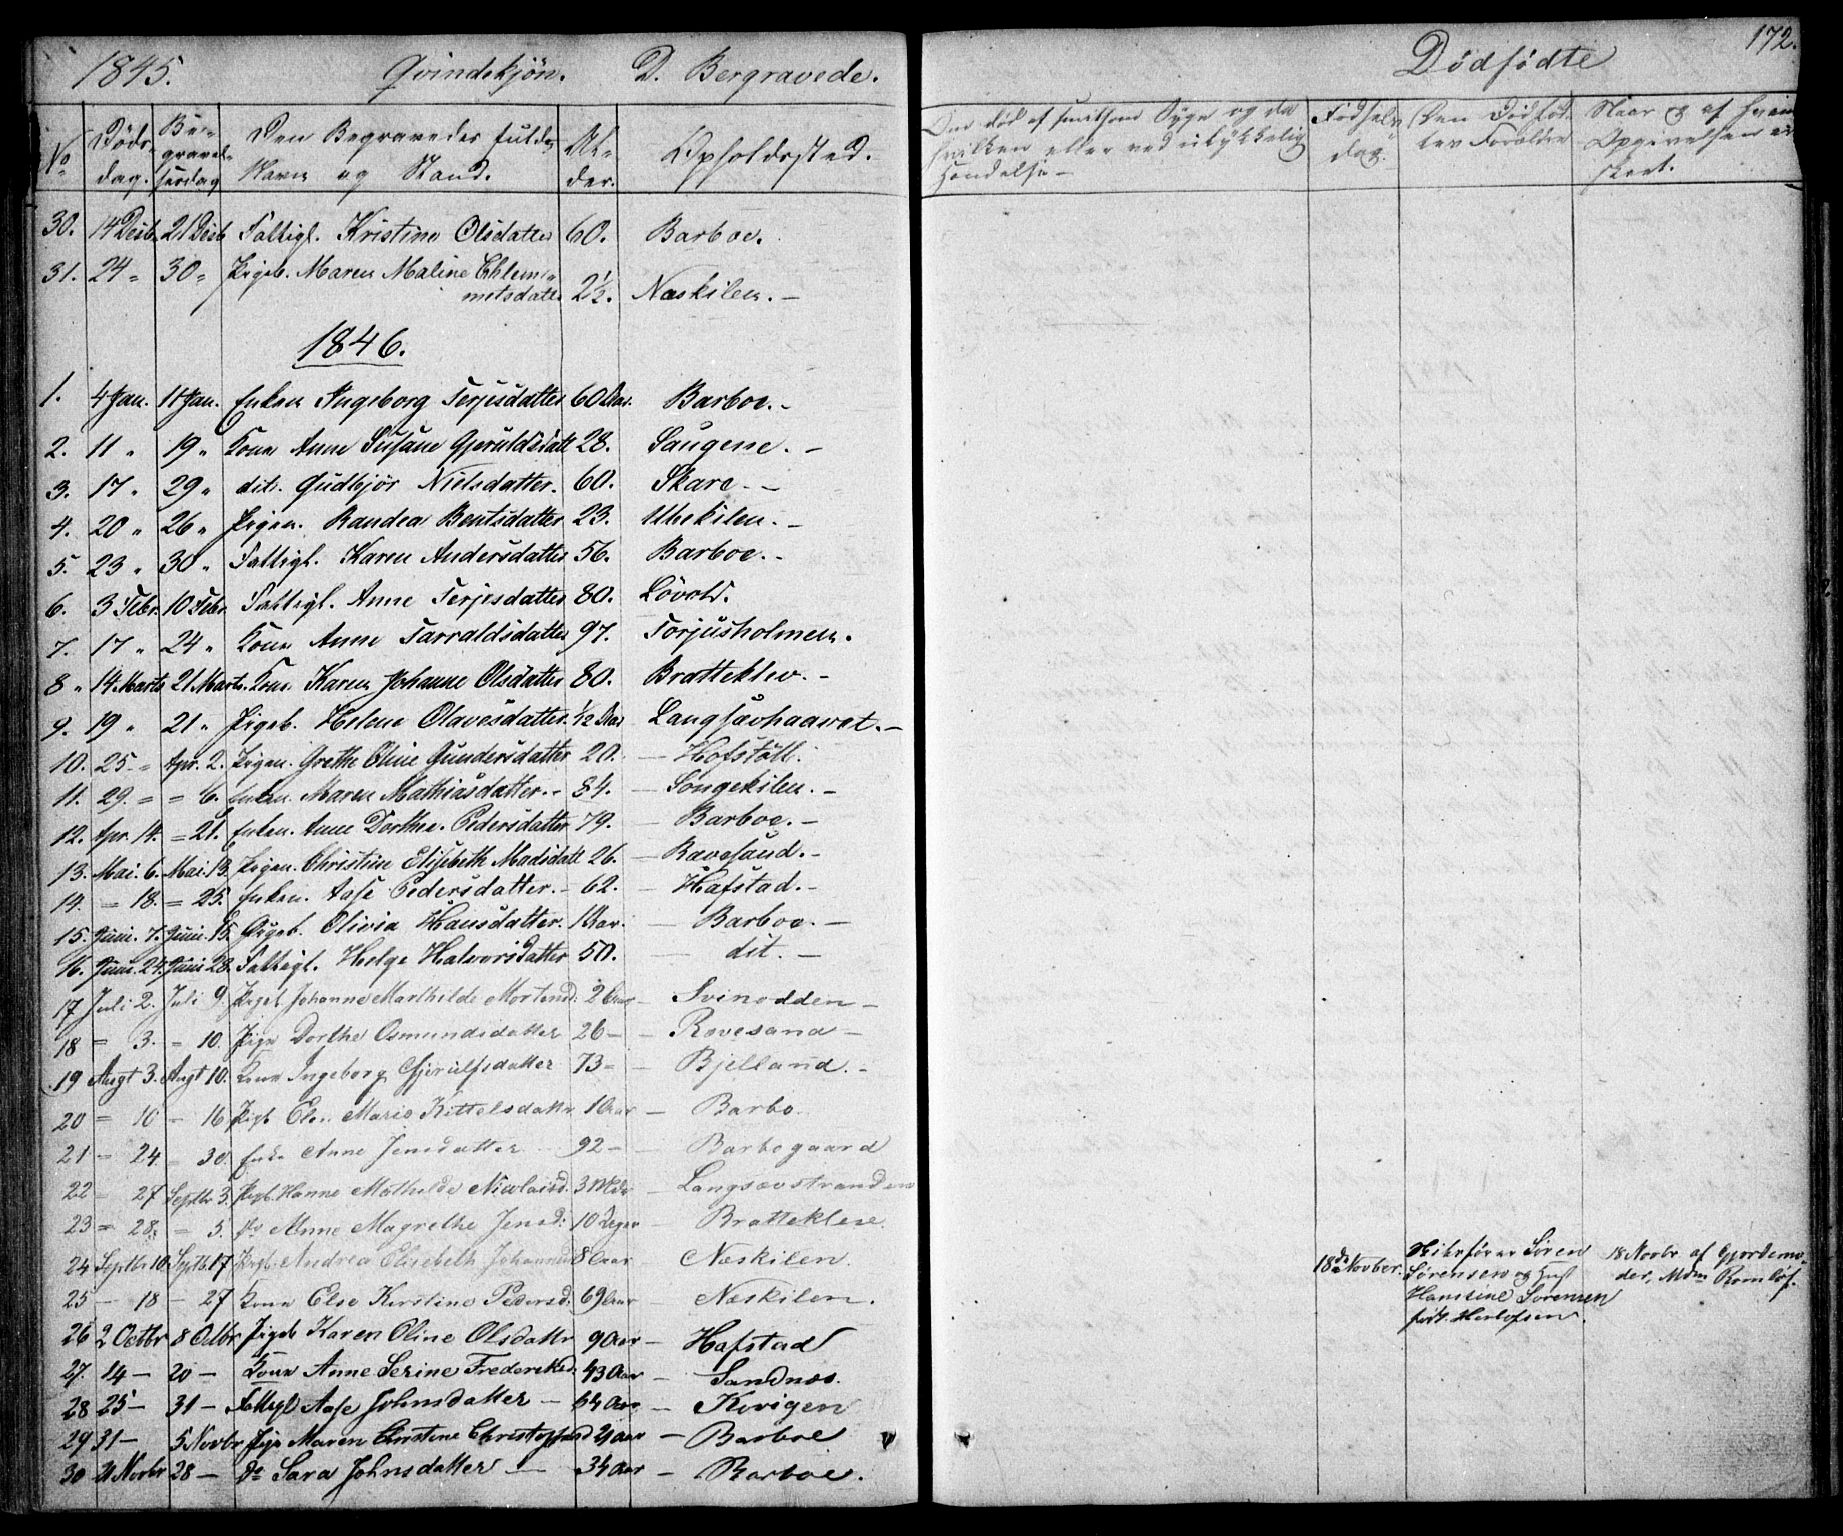 1845. Qvindekjön. D. Bergravede.
No Döds dag. Be- gravel- sesdag Den Begravedes fulde Navn og Stand. Al- der. Opholdssted.
30. 14 Desb. 21 Desb Fattigl. Kristine Olsdatter 60. Barboe.
31. 24 " 30 " Pigeb. Maren Maline Chlem-
metsdatter 2½. Næskilen. -
1846.
1. 4 Jan. 11 Jan. Enken Ingeborg Terjesdatter 60 Aar. Barboe. -
2. 11 " 19 " Kone Anne Susane Gjeruldsdatt 28. Saugene. -
3. 17 " 29 " dit. Gudbjör Nielsdatter. 60. Skare. -
4. 20 " 26 " Pigen. Randea Bentsdatter 23. Ubekilen. -
5. 23 " 30 " Fattigl. Karen Andersdatter 56. Barboe. -
6. 3 Febr. 10 Febr. Fattigl. Anne Terjesdatter 80. Lövold.
7. 17 " 24 " Kone Anne Tarraldsdatter 97. Torjusholmen.
8 " 14 Marts 21 Marts. Kone. Karen Johanne Olsdatter 80. Bratteklev. -
9. 19 " 21 " Pigeb. Helene Olavesdatter. 1/12 Aar Langsævhaavet. -
10. 25 - " Apr. 2. Pigen. Grethe Oline Gundersdatter 20. - Hofstöll.
11. 29. = = 6. Enken. Maren Mathiasdatter. - 84. - Songekilen. -
12. Apr. 14. = 21. Enken. Anne Dorthee. Pedersdatter 79. - Barboe. -
13. Mai. 6. Mai. 13. Pigen. Christine Elisebeth Madsdatt 26. - Ravesand. -
14. = 18. = 25. Enken. Aase Pedersdatter. - 62. - Hafstad. -
15. Juni. 7. Juni. 15. Pigeb. Olivia Hansdatter. 1 Aar. - Barboe. -
16. Juni. 24. Juni 28. Fattigl. Helge Halvorsdatter 50. - dit. -
17 Juli 2. Juli 9. Pigeb Johanne Marthilde Mortensd. 2 Aar - Svinodden -
18 = 3. = 10. Pige Dorthe Osmundsdatter 26 - - Ravesand -
19 Augt 3. Augt 10. Kone Ingeborg Gjerulfsdatter 73 - - Bjelland. -
20 = 10 - 16 Pigb Else Marie Kittelsdattr 1 Aar - Barbo.
21 - 24 - 30. Enke Anne Jensdatter 92 - Barbogaard
22 - 27 Septbr 3. Pigb. Hanne Mathilde Nicolaisd. 3 Mdr - Langsævstranden
23 = 28. = 5. Do Anne Magrethe Jensd. 10 Dager - Bratteklev.
24 Septbr 10. Septb. 17 Pigb. Andrea Elisebeth Johannesd 8 Aar Næskilen.
25 - 18 - 27 Kone Else Kirstine Pedersd: 69 Aar - Næskilen.
26 2 Octbr 8 Octbr Pigeb Karen Oline Olsdattr 9 Aar - Hafstad
27. 14 - 20 - Kone Anne Serine Frederiksd. 43 Aar - Sandnæs.
28 25 - 31 - Fattigl Aase Johnsdatter - 64 Aar - Kvigen
29 31 - 5 Novbr Pige Maren Christine Christophsd 21 Aar - Barboe
30 21 Novbr 28 - Do Sara Johnsdatter - 34 Aar - Barboe.
Dödfödte 172.
Om död af smitsom Syge og da
hvilken eller ved ulykkelig
Hændelse -
Fødsels
dag.
Den Dödföd-
tes Forældre
Naar & af hvem
Opgivelsen er
skeet.
18de Novber.
Sören
Sörensen og Hust
Hansine Sörensen
født Herlofsen.
18 Novbr af Gjordemo-
der, Mdm Romlöf.